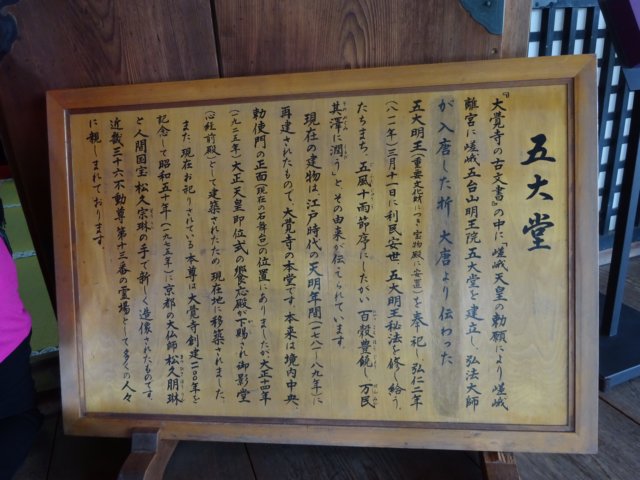 五大堂
『大覺寺の古文書』の中に「嵯峨天皇の勅願により嵯峨
離宮に嵯峨五台山明王院 五大堂を建立し、弘法大師
が入唐した折 大唐より伝わった
五大明王(重要文化財につき宝物殿に安置)を奉祀し弘仁二年
(八一一年)三月十一日に利民安世、五大明王秘法を修し給う、
たちまち、五風十雨節序にしたがい 百穀豊饒し 万民
其澤に潤う」と、その由来が伝えられています。
現在の建物は、江戸時代の天明年間(一七八一-八九年)に
再建されたもので、大覺寺の本堂です。本来は境内中央、
勅使門の正面(現在の石舞台)の位置にありましたが、大正十四年
(一九二五年)大正天皇即位式の饗応殿が下賜され御影堂
(心経前殿)として建築されたため 現在地に移築されました。
また 現在お祀りされている本尊は大覺寺創建一一〇〇年を
記念して昭和五十年(一九七五年)に京都の大仏師 松久朋琳
と人間国宝 松久宗琳の手で新しく造像されたものです。
近畿三十六不動尊第十三番の霊場として多くの人々
に親しまれております。